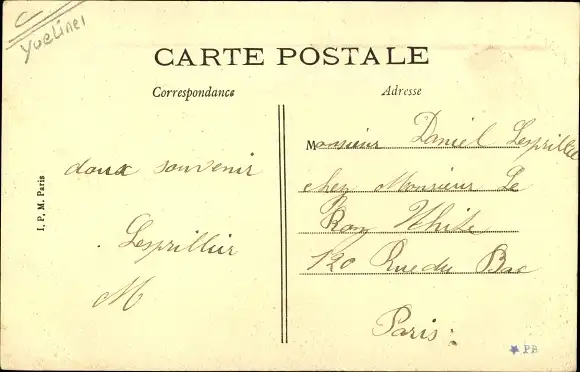 Yvelines
CARTE POSTALE
Correspondance
Adresse
I. P. M. Paris
doux souvenir
Lesprillier
M
Monsieur Daniel Lesprillier
chez Monsieur Le
Roy White
120 Rue du Bac
Paris
PB